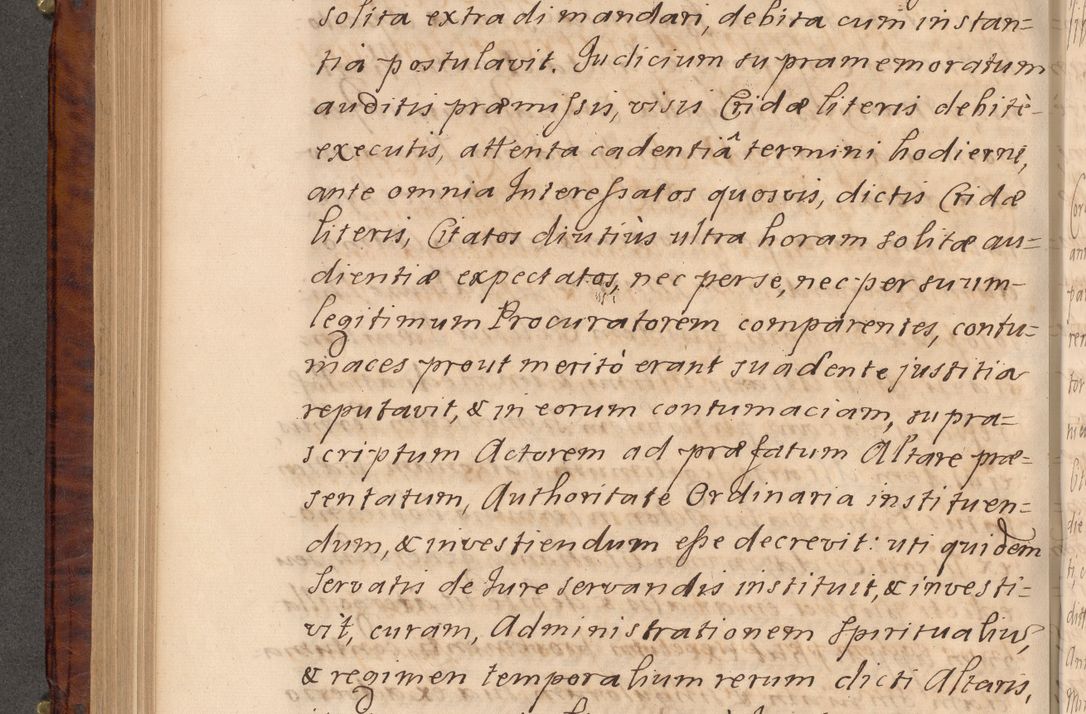 solita extradi mandari, debita cum instan=
tia postulavit. Judicium supramemoratum
auditis præmissis, visis Cridæ literis debitè
executis, attenta cadentiâ termini hodierni,
ante omnia Interessatos quosvis, dictis Cridæ
literis, Citatos diutiùs ultra horam solitæ au=
dientiæ expectatos, nec per se, nec per suum
legitimum Procuratorem comparentes, contu=
maces prout meritò erant suadente justitia
reputavit, & in eorum contumaciam, supra=
scriptum Actorem ad præfatum Altare præ=
sentatum, Authoritate Ordinaria instituen=
dum, & investiendum esse decrevit: uti quidem
servatis de Jure servandis instituit, & investi=
vit, curam, Administrationem Spiritualium,
& regimen temporalium rerum dicti Altaris,